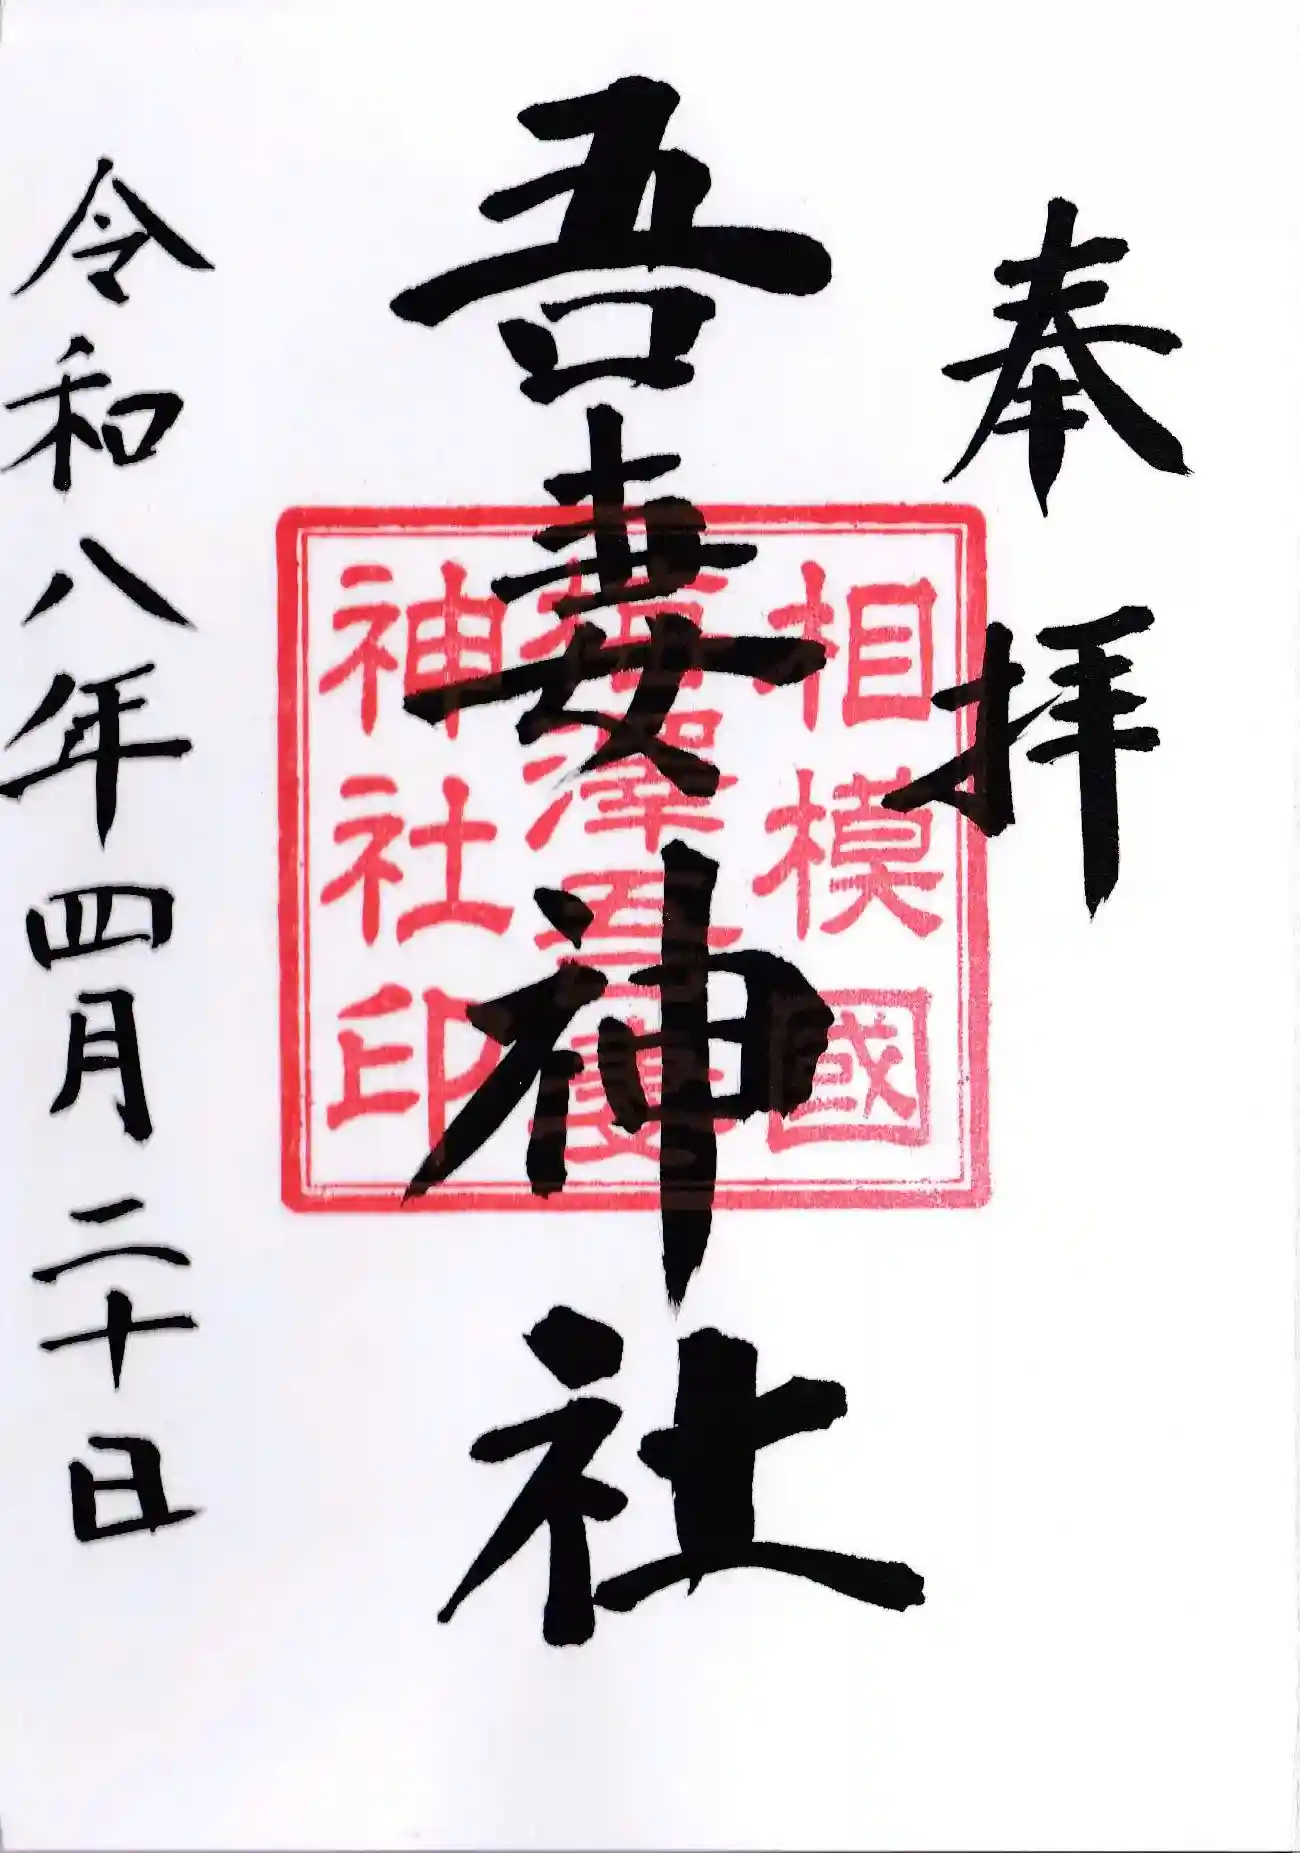 奉拝
吾妻神社
相模國
梅澤吾妻
神社印
令和八年四月二十日